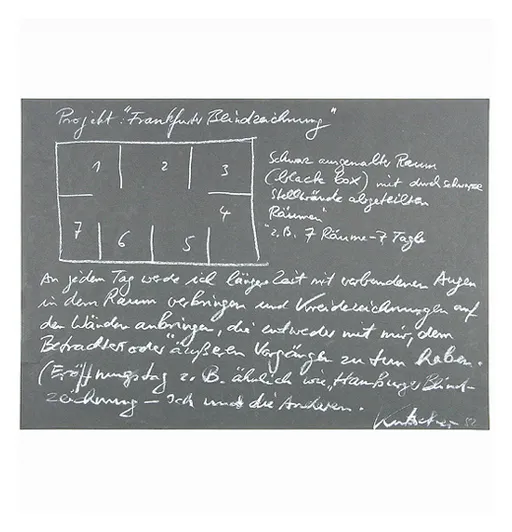 Projekt: "Frankfurter Blindzeichnung"
1 2 3
4
7 6 5
Schwarz ausgemalter Raum
(black box) mit durch schwarze
Stellwände abgeteilten
Räumen
z.B. 7 Räume - 7 Tage
An jedem Tag werde ich längere Zeit mit verbundenen Augen
in dem Raum verbringen und Kreidezeichnungen auf
den Wänden anbringen, die entweder mit mir, dem
Betrachter oder äußeren Vorgängen zu tun haben.
(Eröffnungstag z.B. ähnlich wie "Hamburger Blind-
zeichnung – Ich und die Anderen.